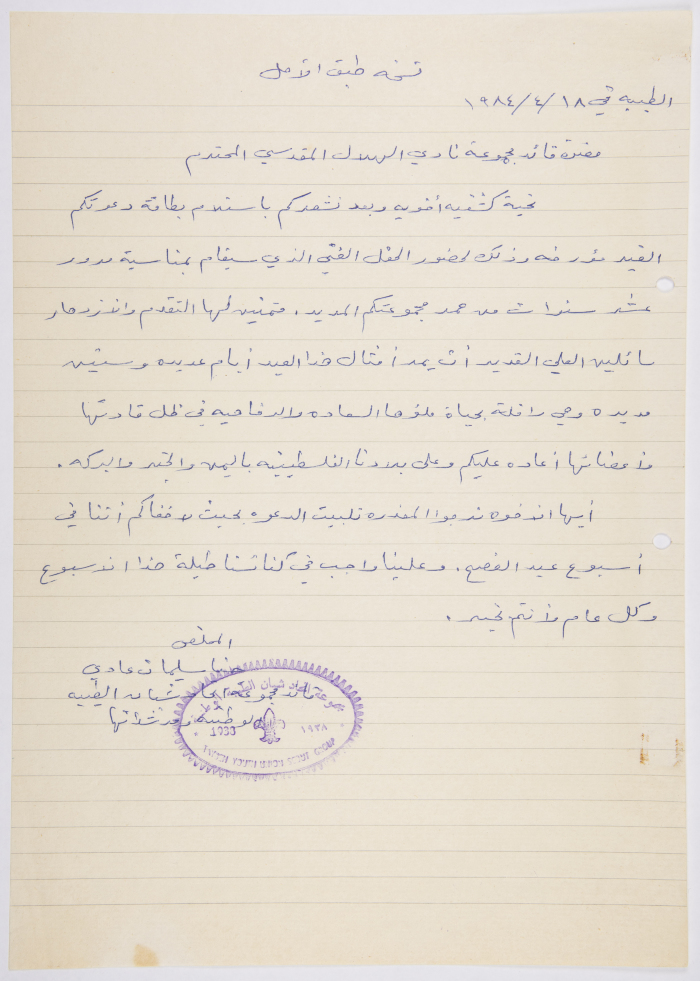 نسخه طبق الاصل
الطيبه في ١٨/٤/١٩٨٤
حضرة قائد مجموعة نادي الهلال المقدسي المحترم
تحية كشفيه أخويه وبعد نشعركم باستلام بطاقة دعوتكم
الغير مؤرخه وذلك لحضور الحفل الفني الذي سيقام بمناسبة مرور
عشر سنوات من عمر مجموعتكم المديد. متمنين لها التقدم والازدهار
سائلين العلي القدير أن يمر أمثال هذا العيد أيام عديده وسنين
مديده وهي رافلة بحياة ملؤها السعاده والرفاهيه في ظل قادتها
وأعضائها أعاده عليكم وعلى بلادنا الفلسطينيه باليمن والخير والبركه.
أيها الاخوه نرجوا المعذره تلبيت الدعوه بحيث لا خفاكم أننا في
أسبوع عيد الفصح. وعلينا واجب في كنائسنا طيلة هذا الاسبوع
وكل عام وأنتم بخير.
المخلص
حنا سليمان عادي
قائد مجموعة اتحاد شبان الطيبه
الوطنيه ومرشداتها
مجموعة اتحاد شبان الطيبة
1938 ١٩٣٨